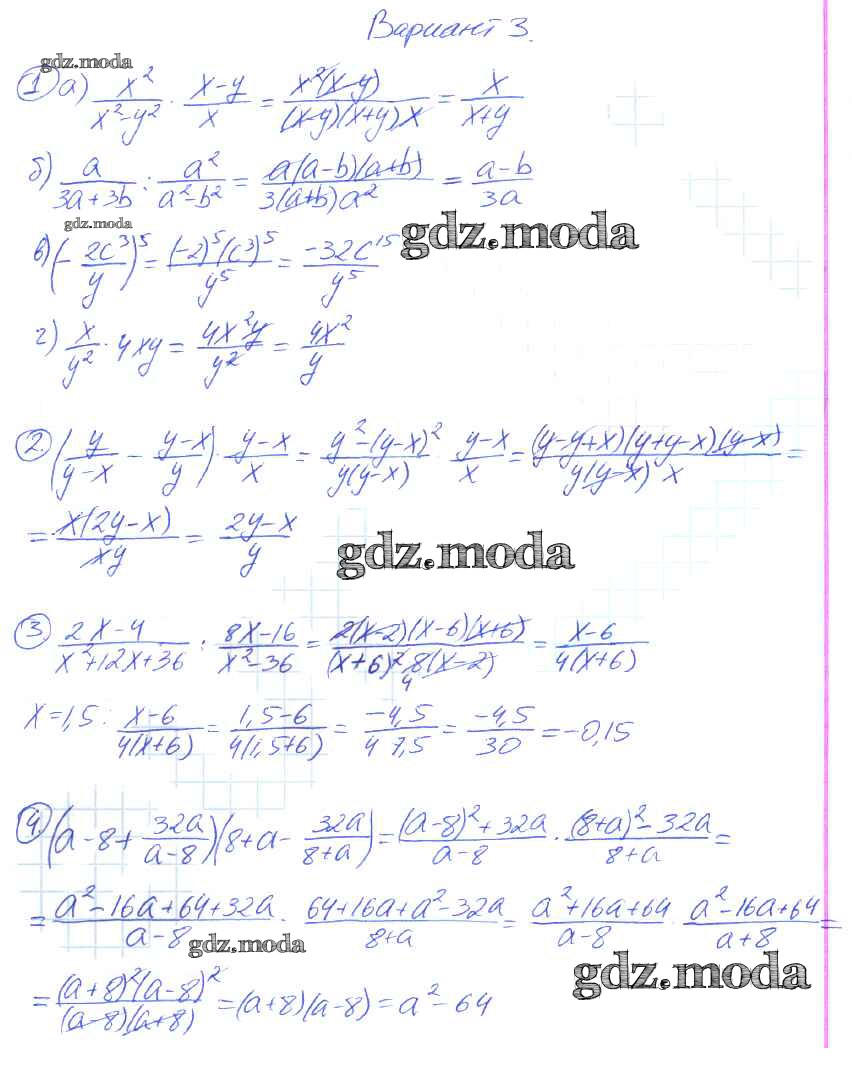 Вариант 3.
gdz.moda
① а) x²/(x²-y²) · (x-y)/x = x²(x-y)/((x-y)(x+y)x) = x/(x+y)
б) a/(3a+3b) : a²/(a²-b²) = a(a-b)(a+b)/(3(a+b)a²) = (a-b)/(3a)
gdz.moda
gdz.moda
в) (-2c³/y)⁵ = (-2)⁵(c³)⁵/y⁵ = -32c¹⁵/y⁵
г) x/y² · 4xy = 4x²y/y² = 4x²/y
②. (y/(y-x) - (y-x)/y) · (y-x)/x = (y²-(y-x)²)/(y(y-x)) · (y-x)/x = (y-y+x)(y+y-x)(y-x)/(y(y-x)x) =
= x(2y-x)/(xy) = (2y-x)/y
gdz.moda
③. (2x-4)/(x²+12x+36) : (8x-16)/(x²-36) = 2(x-2)(x-6)(x+6)/((x+6)² 8(x-2)) = (x-6)/(4(x+6))
4
x=1,5: (x-6)/(4(x+6)) = (1,5-6)/(4(1,5+6)) = -4,5/(4 7,5) = -4,5/30 = -0,15
④. (a-8+32a/(a-8))(8+a-32a/(8+a)) = ((a-8)²+32a)/(a-8) · ((8+a)²-32a)/(8+a) =
= (a²-16a+64+32a)/(a-8) · (64+16a+a²-32a)/(8+a) = (a²+16a+64)/(a-8) · (a²-16a+64)/(a+8) =
gdz.moda
gdz.moda
= (a+8)²(a-8)²/((a-8)(a+8)) = (a+8)(a-8) = a²-64